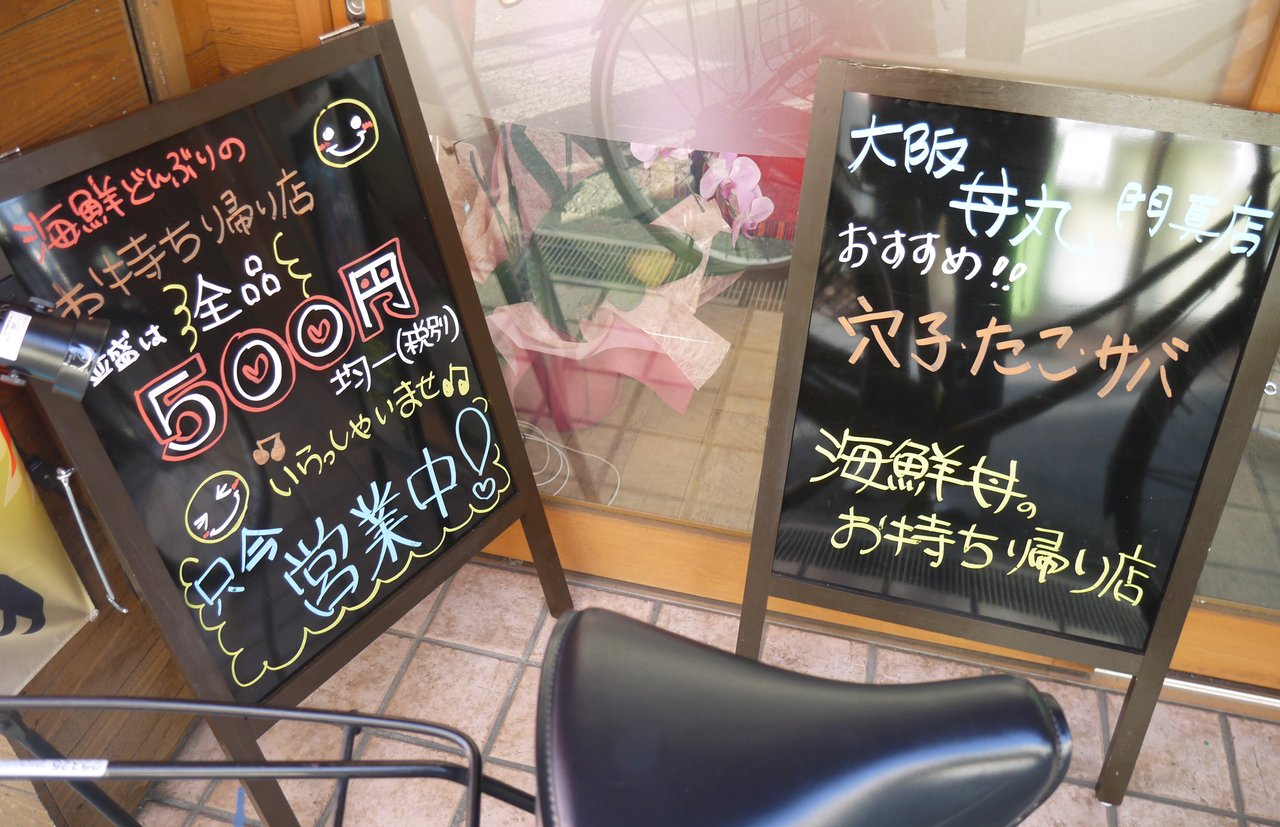 海鮮どんぶりの
お持ちり帰り店
並盛は全品
500円
均一(税別)
いらっしゃいませ♫
只今営業中!
大阪
丼丸 門真店
おすすめ!!
穴子・たこ・サバ
海鮮丼の
お持ちり帰り店